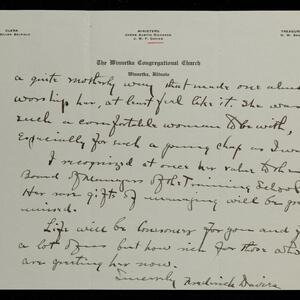 CLERK
MINISTERS
JAMES AUSTIN RICHARDS
J. W. F. DAVIES
TREASU
The Winnetka Congregational Church
Winnetka, Illinois
a quite motherly way that made one almo
worship her, at least feel like it. She was
such a comfortable woman to be with,
Especially for such a young chap as I was
I recognized at once her value to the
Board of Managers of the Training School
Her rare gifts of managing will be gre
missed.
Life will be lonesomer for you and f
a lot of us but how rich for those who
are greeting her now.
Sincerely Frederick